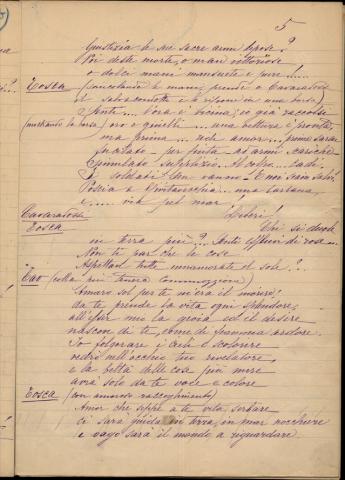 5
Giustizia le sue sacre armi depose?
Voi deste morte, o man vittoriose
o dolci mani mansuete e pure!...
Tosca (svincolando le mani, prende a Cavaradossi
Senti... l'ora è vicina; io già raccolsi
(mostrando la borsa) oro e gioielli... una vettura è pronta,
ma prima... ridi amor... prima sarai
fucilato - per finta ad armi cariche
Simulato supplizio. Al colpo... cadi.
I soldati sen vanno - E noi siam salvi.
Poscia a Civitavecchia... una tartana,
e... via pel mar
Cavaradossi Liberi!
Tosca Chi si duole
in terra più?... Senti effluvi di rose...
Non ti par che le cose
Aspettan tutte innamorate il sole?...
Cav (colla più tenera commozione)
Amaro sol per te m'era il morire,
da te prende la vita ogni splendore,
all'esser mio la gioia ed il desire
nascon di te, come di fiamma ardore.
Io folgorare i cieli e scolorire
vedrò nell'occhio tuo rivelatore,
e la beltà delle cose più mire
avrà solo da te voce e colore
Tosca (con amoroso raccoglimento)
Amor che seppe a te vita serbare
ci sarà guida in terra, in mar nocchiere
e vago sarà il mondo a riguardare.